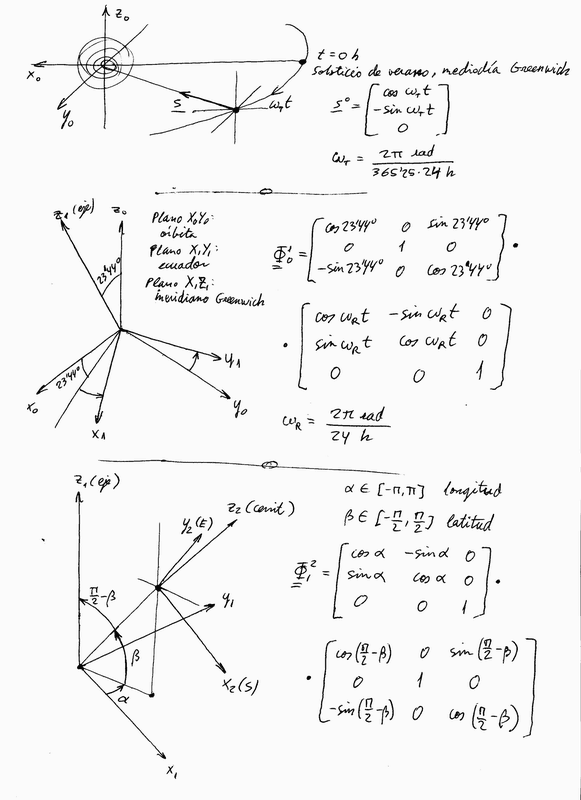 z₀
x₀
y₀
s
ωₜt
t = 0 h
Solsticio de verano, mediodía Greenwich
s⁰ = [ cos ωₜt
-sin ωₜt
0 ]
ωₜ = 2π rad / 365'25·24 h
z₁ (eje)
z₀
23'44º
23'44º
x₀
x₁
y₁
y₀
Plano X₀Y₀:
órbita
Plano X₁Y₁:
ecuador
Plano X₁Z₁:
meridiano Greenwich
Φ₀¹ = [ cos 23'44º 0 sin 23'44º
0 1 0
-sin 23'44º 0 cos 23'44º ] ·
· [ cos ω_R t -sin ω_R t 0
sin ω_R t cos ω_R t 0
0 0 1 ]
ω_R = 2π rad / 24 h
z₁ (eje)
z₂ (cenit)
y₂ (E)
y₁
x₂ (S)
x₁
π/2 - β
β
α
α ∈ [-π, π] longitud
β ∈ [-π/2, π/2] latitud
Φ₁² = [ cos α -sin α 0
sin α cos α 0
0 0 1 ] ·
· [ cos (π/2 - β) 0 sin (π/2 - β)
0 1 0
-sin (π/2 - β) 0 cos (π/2 - β) ]